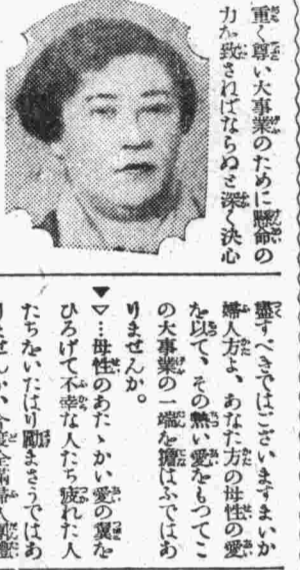 重く尊い大事業のために懸命の
力を致さればならぬと深く決心
盡すべきではございますまいか
婦人方よ、あなた方の母性の愛
を以て、その熱い愛をもつてこ
の大事業の一端を擔はふではあ
りませんか。
▽…母性のあたゝかい愛の翼を
ひろげて不幸な人たち疲れた人
たちをいたはり勵まさうではあ